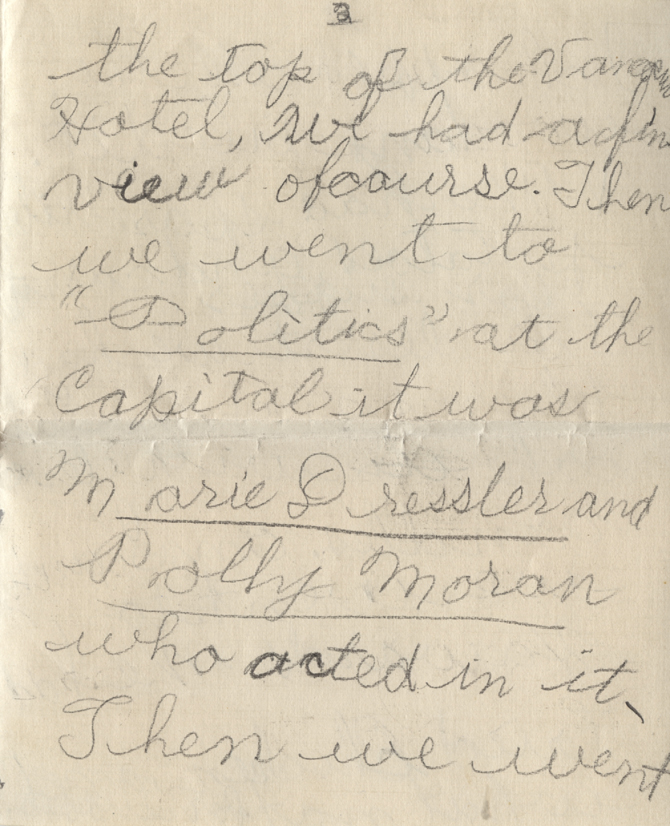 3
the top of the Vancouver
Hotel, we had a fine
view ofcourse. Then
we went to
"Politics" at the
Capital it was
Marie Dressler and
Polly Moran
who acted in it,
Then we went